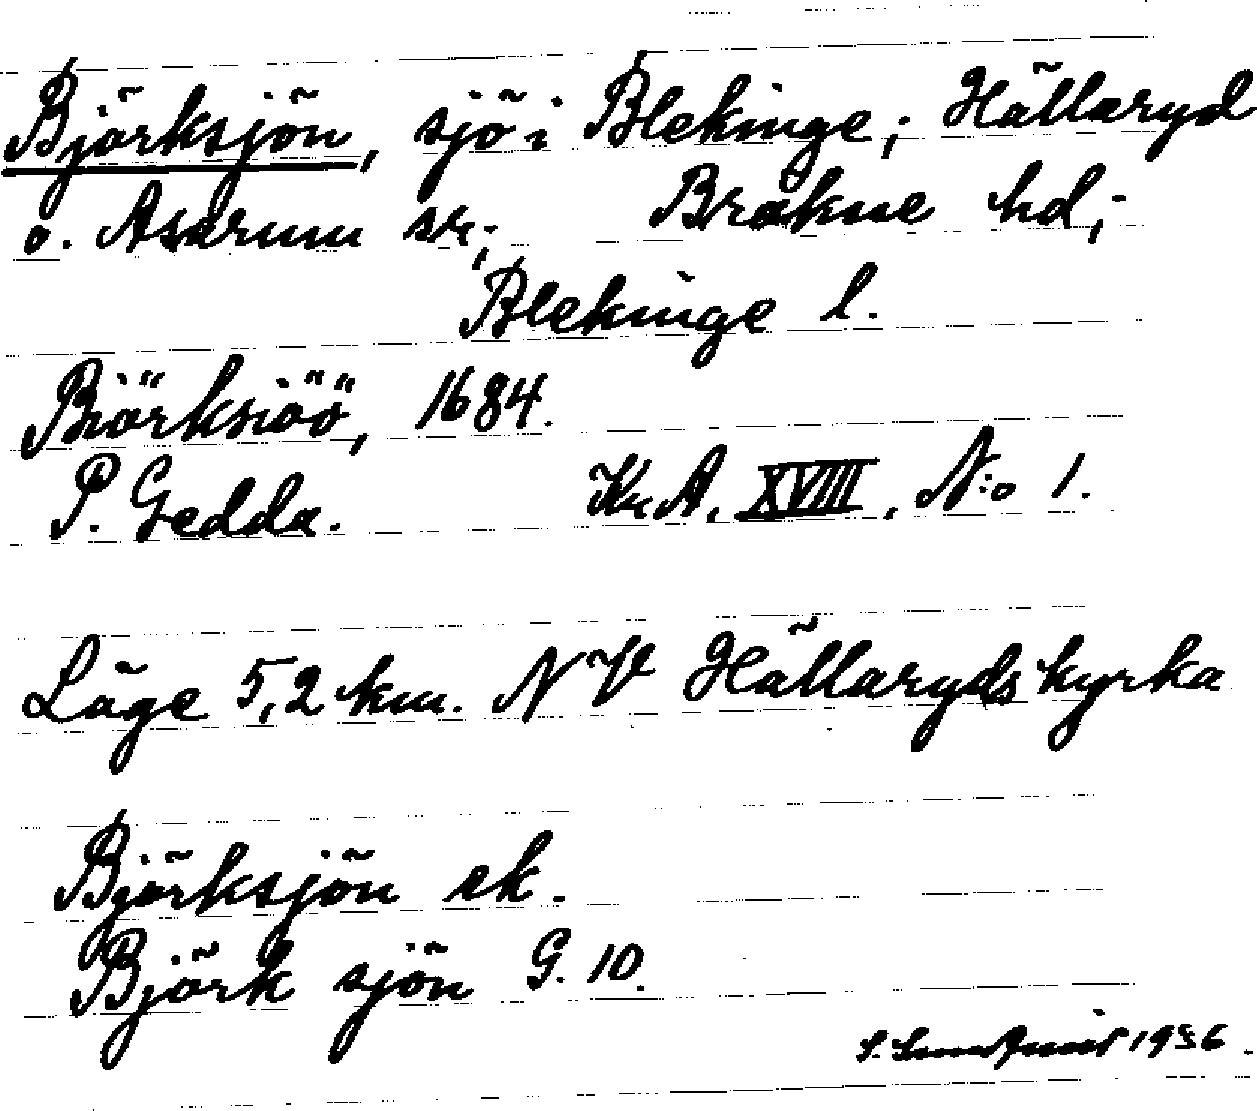 Björksjön, sjö i Blekinge; Hällaryd
o. Asarum sr; Bräkne hd,
Blekinge l.
Biörksiöö, 1684.
P. Gedda. Kr A, XVIII, N:o 1.
Läge 5,2 km. NV Hällaryds kyrka
Björksjön ek.
Björk sjön G. 10.
S. 1936.